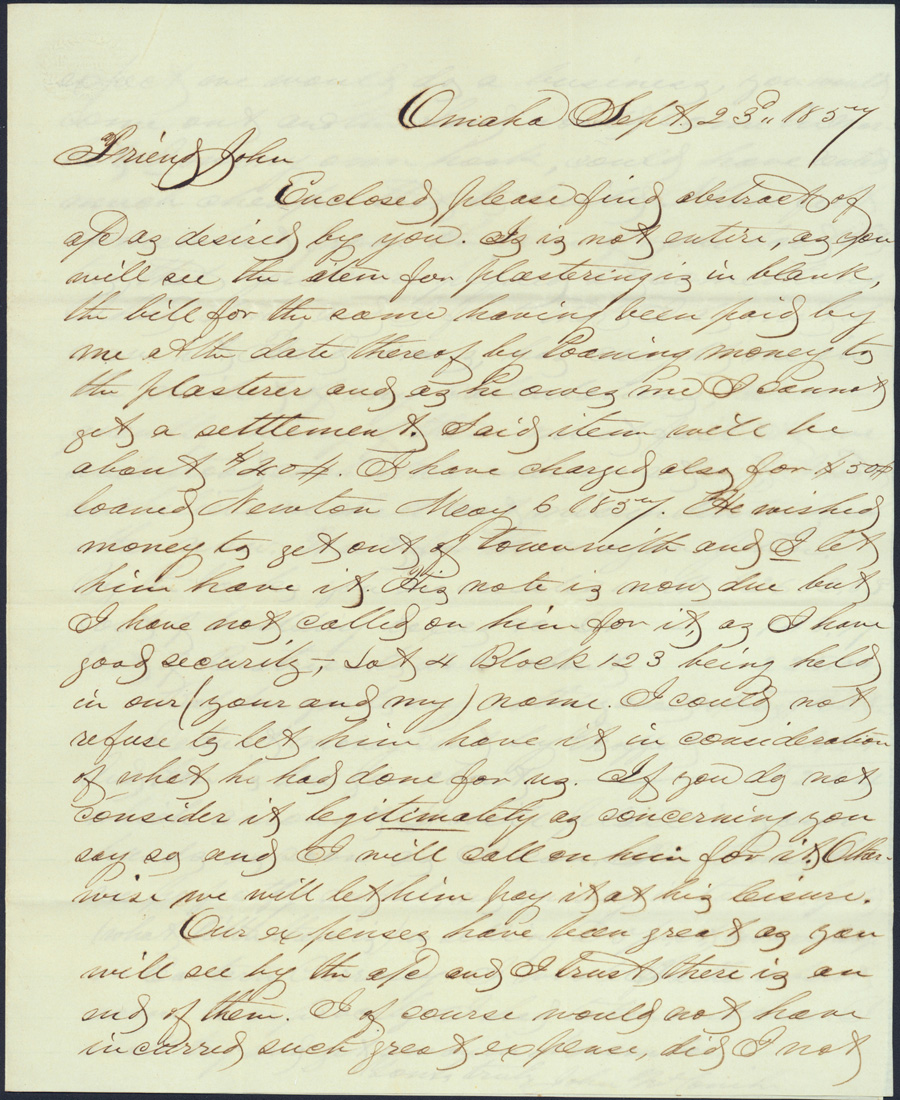 Omaha Sept. 23d, 1857
Friend John
Enclosed please find abstract of
a/c as desired by you. It is not entire, as you
will see the item for plastering is in blank,
the bill for the same having been paid by
me at the date thereof by loaning money to
the plasterer and as he owes me I cannot
get a settlement. Said item will be
about $40#. I have charged also for $50#
loaned Newton May 6 1857. He wished
money to get out of town with and I let
him have it. His note is now due but
I have not called on him for it, as I have
good security,- Lot 4 Block 123 being held
in our (your and my) name. I could not
refuse to let him have it in consideration
of what he had done for us. If you do not
consider it legitimately as concerning you
say so and I will call on him for it. Other-
wise we will let him pay it at his leisure.
Our expenses have been great as you
will see by the a/c and I trust there is an
end of them. I of course would not have
incurred such great expense, did I not